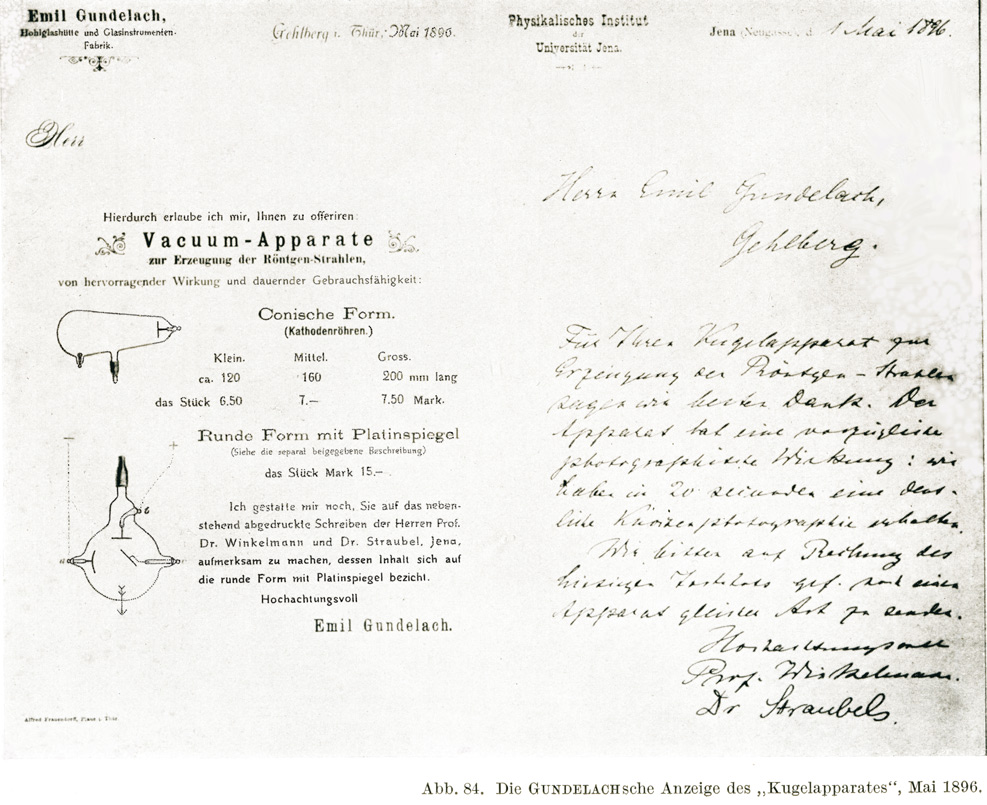 Emil Gundelach,
Hohlglashütte und Glasinstrumenten-
Fabrik.
Gehlberg i. Thür., Mai 1896.
Herr
Hierdurch erlaube ich mir, Ihnen zu offeriren:
Vacuum-Apparate
zur Erzeugung der Röntgen-Strahlen,
von hervorragender Wirkung und dauernder Gebrauchsfähigkeit:
Conische Form.
(Kathodenröhren.)
Klein. Mittel. Gross.
ca. 120 160 200 mm lang
das Stück 6.50 7.— 7.50 Mark.
Runde Form mit Platinspiegel
(Siehe die separat beigegebene Beschreibung)
das Stück Mark 15.—
Ich gestatte mir noch, Sie auf das neben-
stehend abgedruckte Schreiben der Herren Prof.
Dr. Winkelmann und Dr. Straubel, Jena,
aufmerksam zu machen, dessen Inhalt sich auf
die runde Form mit Platinspiegel bezicht.
Hochachtungsvoll
Emil Gundelach.
Physikalisches Institut
der
Universität Jena.
Jena (Neugasse), d. 1 Mai 1896.
Herrn Emil Gundelach,
Gehlberg.
Für Ihren Kugelapparat zur
Erzeugung der Röntgen-Strahlen
sagen wir besten Dank. Der
Apparat hat eine vorzügliche
photographische Wirkung: wir
haben in 20 secunden eine deut-
liche Knochenphotographie erhalten.
Wir bitten auf Rechnung des
hiesigen Instituts gef. noch einen
Apparat gleicher Art zu senden.
Hochachtungsvoll
Prof. Winkelmann.
Dr Straubel.
Abb. 84. Die GUNDELACHsche Anzeige des „Kugelapparates“, Mai 1896.